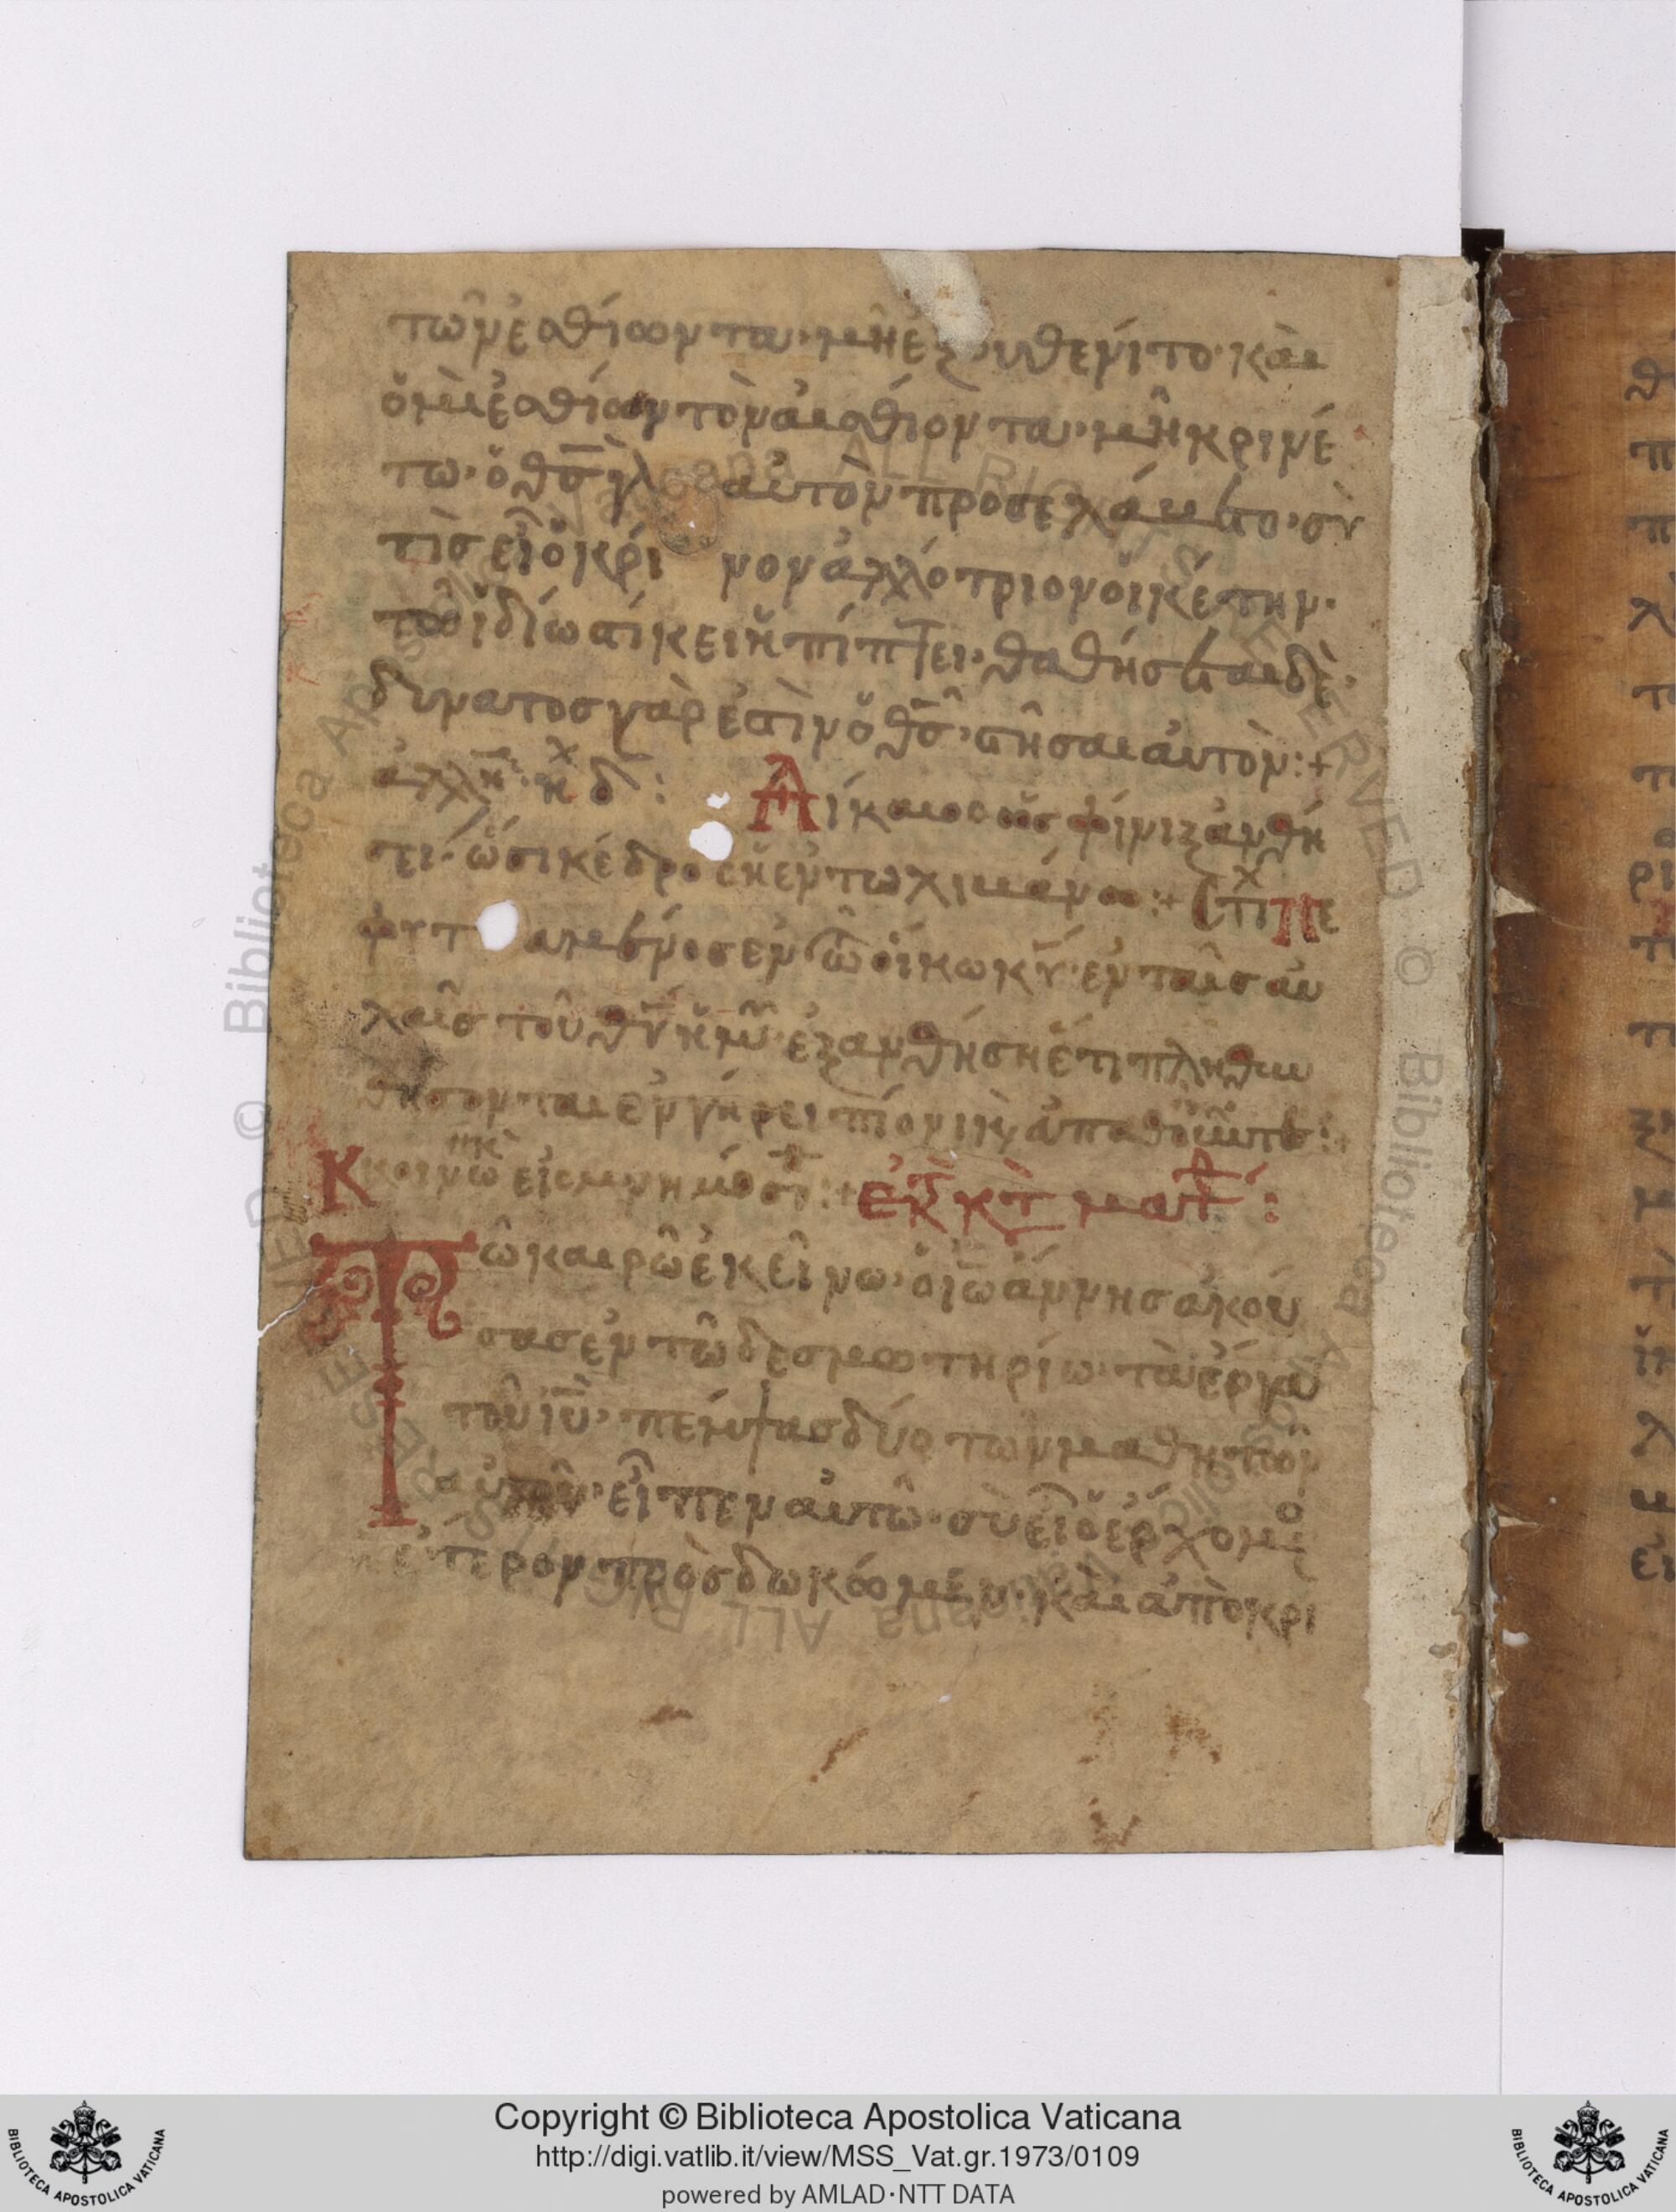 τῶν ἐσθίωντα· μὴ ἐξουθενίτο· καὶ
ὁ μὶ ἐσθίων τὸν αἰσθίοντα· μὴ κρινέ
τω· ὁ θς γὰρ αὐτὸν προσελάμβετο· σὺ
τὶσ εἶ ὁ κρί νον ἀλλότριον οἰκέστην·
τοῦ ἰδίω στίκει ἢ πίπτει· σταθήσεται δὲ·
δυνατοσ γὰρ ἐστὶν ὁ θς· στῆσαι αὐτὸν :+
ἀλλη· ηχ δ :
Δίκαιοσ ὡς φίνιξ ἀνθή
σει· ὡσι κέδροσ ἡ ἐν τω λιβάνω :+ Στιχ πε
φυτ μένοσ ἐν τῶ οἴκω κυ· ἐν ταῖσ αὐ
λαῖσ τοῦ θυ ἡμῶν· ἐξανθήση ἔτι πληθυν
θησονται ἐν γήρει πίονι κ
Κ κοινω εἰσ μνημόσυ :+ ἐκ τ κτ ματθ :
Τῶ καιρῶ ἐκείνω· ὁ ἰωάννησ ἀκού
σασ ἐν τῶ δεσμωτηρίω· τὰ ἔργα
τοῦ ιυ· πέμψασ δύο των μαθητῶν
αὐτοῦ· εἶπεν αὐτῶ· σὺ εἶ ὁ ἐρχομο
ἢ ἕτερον πρὸσδωκῶμέν· καὶ ἀπὸκρι
Copyright © Biblioteca Apostolica Vaticana
http://digi.vatlib.it/view/MSS_Vat.gr.1973/0109
powered by AMLAD·NTT DATA
BIBLIOTECA APOSTOLICA VATICANA
BIBLIOTECA APOSTOLICA VATICANA